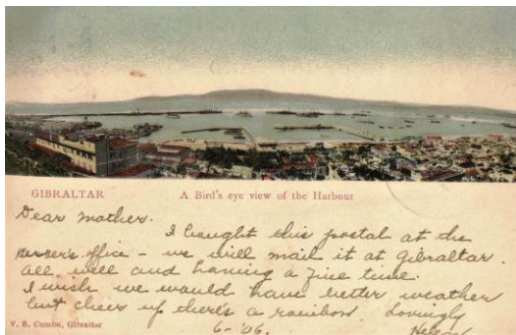 GIBRALTAR A Bird's eye view of the Harbour
Dear Mother.
I bought this postal at the
Purser's office - we will mail it at Gibraltar.
all well and having a fine time.
I wish we would have better weather
but cheer up there's a rainbow. Lovingly
V. B. Cumbo, Gibraltar 6-'06. Helen